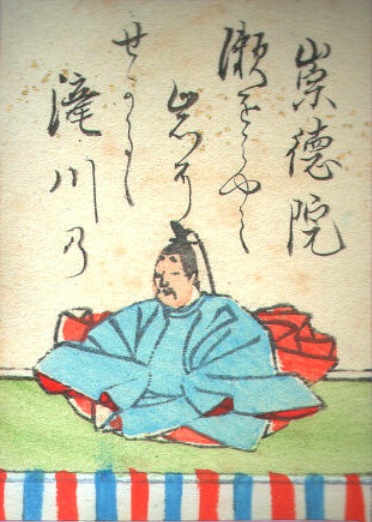 崇徳院
瀬をはやみ
岩に
せかるゝ
滝川乃